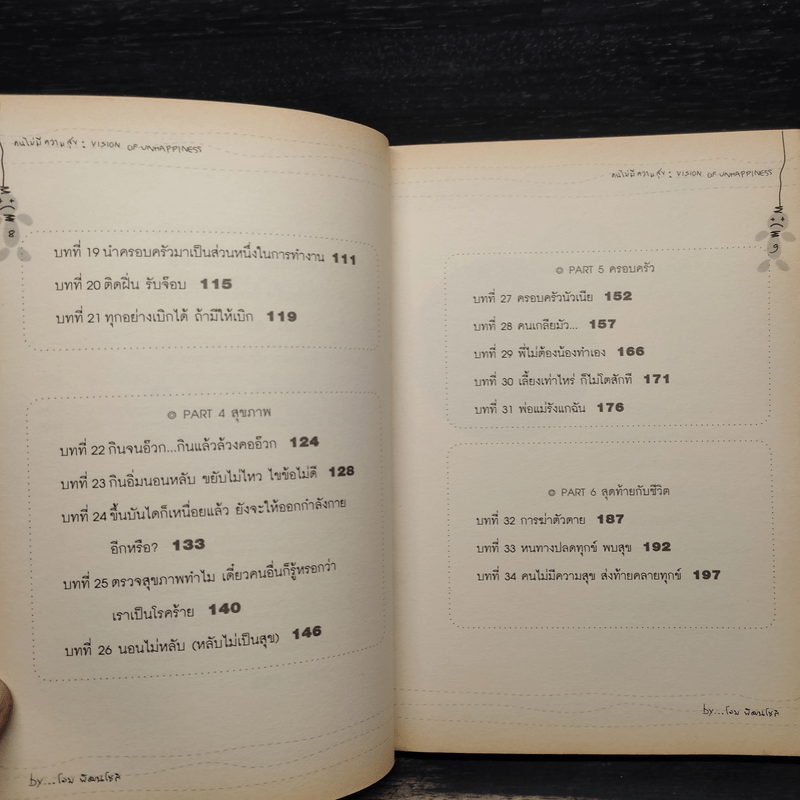 คนไม่มีความสุข : VISION OF UNHAPPINESS
๘
บทที่ 19 นำครอบครัวมาเป็นส่วนหนึ่งในการทำงาน 111
บทที่ 20 ติดฝิ่น รับจ๊อบ 115
บทที่ 21 ทุกอย่างเบิกได้ ถ้ามีให้เบิก 119
PART 4 สุขภาพ
บทที่ 22 กินจนอ๊วก...กินแล้วล้วงคออ๊วก 124
บทที่ 23 กินอิ่มนอนหลับ ขยับไม่ไหว ไขข้อไม่ดี 128
บทที่ 24 ขึ้นบันไดก็เหนื่อยแล้ว ยังจะให้ออกกำลังกาย
อีกหรือ? 133
บทที่ 25 ตรวจสุขภาพทำไม เดี๋ยวคนอื่นก็รู้หรอกว่า
เราเป็นโรคร้าย 140
บทที่ 26 นอนไม่หลับ (หลับไม่เป็นสุข) 146
by...โจม พัฒนโชล
คนไม่มีความสุข : VISION OF UNHAPPINESS
๙
PART 5 ครอบครัว
บทที่ 27 ครอบครัวนัวเนีย 152
บทที่ 28 คนเกลียมัว... 157
บทที่ 29 พี่ไม่ต้องน้องทำเอง 166
บทที่ 30 เลี้ยงเท่าไหร่ ก็ไม่โตสักที 171
บทที่ 31 พ่อแม่รังแกฉัน 176
PART 6 สุดท้ายกับชีวิต
บทที่ 32 การฆ่าตัวตาย 187
บทที่ 33 หนทางปลดทุกข์ พบสุข 192
บทที่ 34 คนไม่มีความสุข ส่งท้ายคลายทุกข์ 197
by...โจม พัฒนโชล